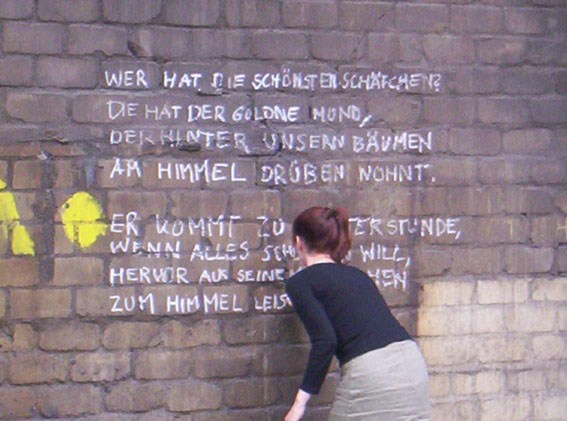 WER HAT DIE SCHÖNSTEN SCHÄFCHEN?
DIE HAT DER GOLDNE MOND,
DER HINTER UNSERN BÄUMEN
AM HIMMEL DRÜBEN WOHNT.
ER KOMMT ZU TERSTUNDE,
WENN ALLES SCH WILL,
HERVOR AUS SEINE HEN
ZUM HIMMEL LEIS